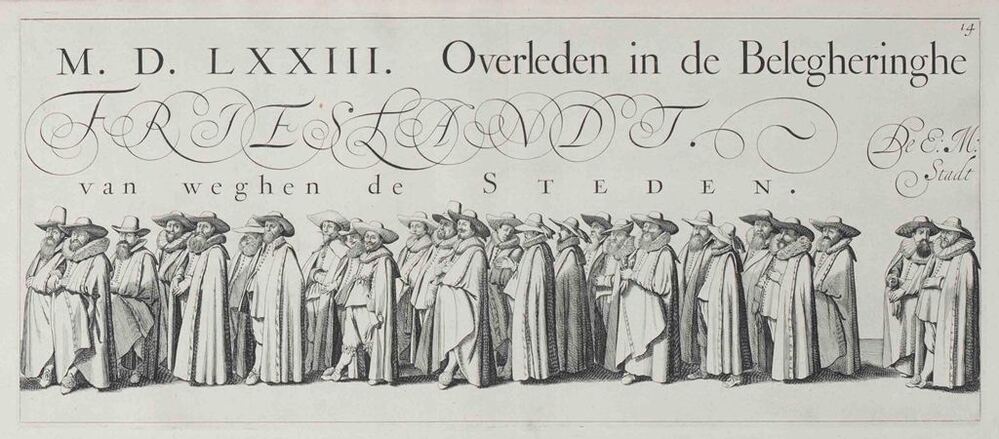 14
M. D. LXXIII. Overleden in de Belegheringhe
FRIESLANDT.
De E. M:
Stadt
van weghen de STEDEN.